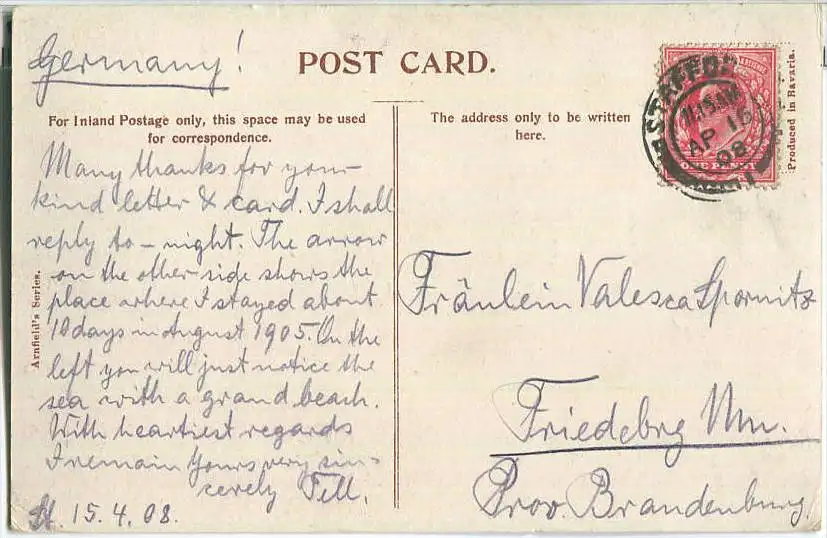 Germany!
POST CARD.
For Inland Postage only, this space may be used
for correspondence.
The address only to be written
here.
Produced in Bavaria.
STAFFORD
11.15 AM
AP 15
08
ONE PENNY
Arnfield's Series.
Many thanks for your
kind letter & card. I shall
reply to-night. The arrow
on the other side shows the
place where I stayed about
10 days in August 1905. On the
left you will just notice the
sea with a grand beach.
With heartiest regards
I remain Yours very sin-
cerely Tell.
St. 15.4.08.
Fräulein Valesca Spornitz
Friedebrg Nm.
Prov. Brandenburg.